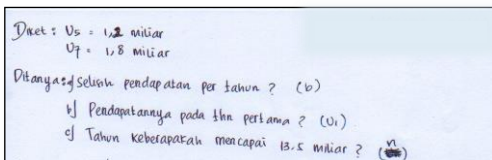 Diket : U5 = 1,2 miliar
U7 = 1,8 miliar
Ditanya : a] selisih pendapatan per tahun ? (b)
b] Pendapatannya pada thn pertama ? (U1)
c] Tahun keberapakah mencapai 13.5 miliar ? (n)